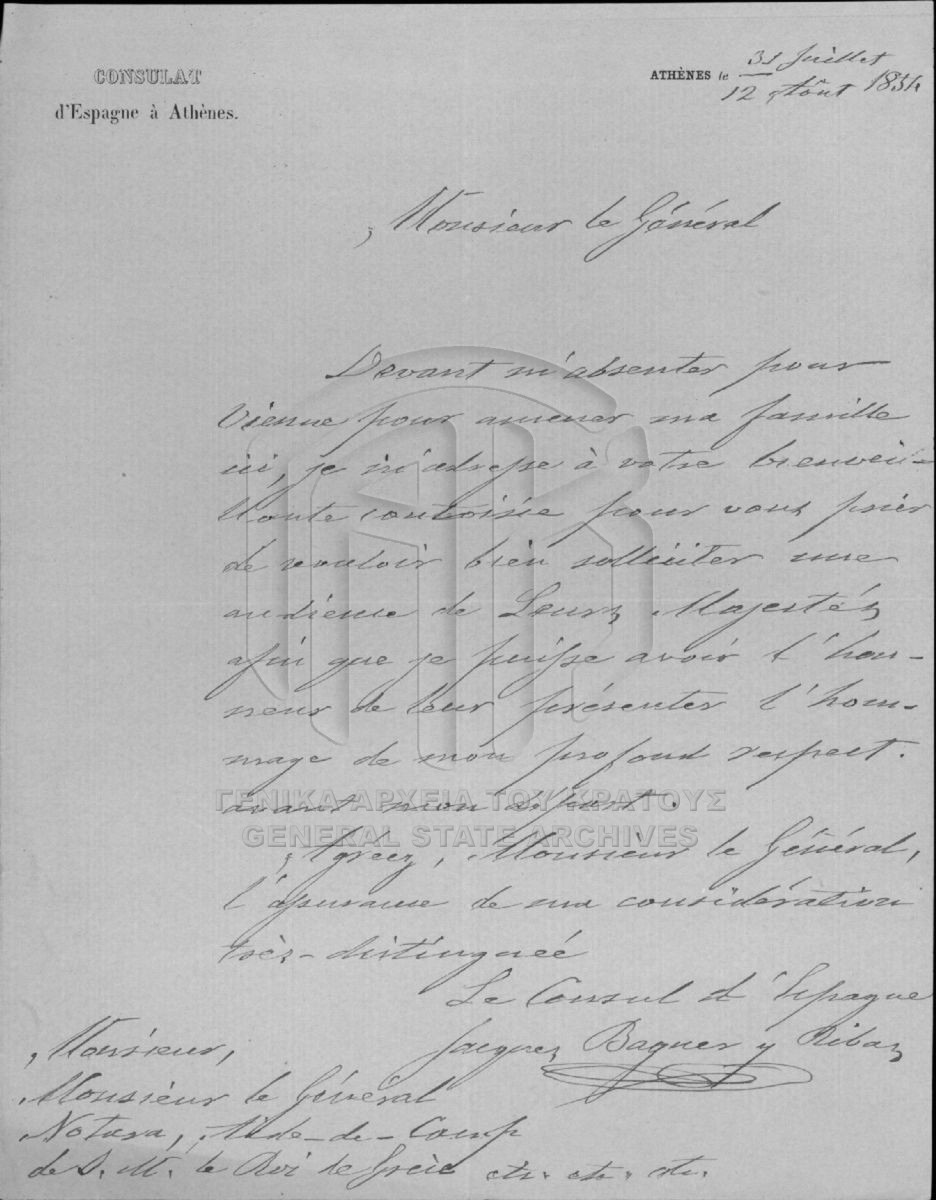 CONSULAT
d'Espagne à Athènes.
ATHÈNES le 31 Juillet
12 Août 1854
Monsieur le Général
Devant m'absenter pour
Vienne pour amener ma famille
ici, je m'adresse à votre bienveil-
lante courtoisie pour vous prier
de vouloir bien solliciter une
audience de Leurs Majestés
afin que je puisse avoir l'hon-
neur de leur présenter l'hom-
mage de mon profond respect.
avant mon départ.
Agréez, Monsieur le Général,
l'assurance de ma considération
très-distinguée
Le Consul d'Espagne
Jacques Baguer y Ribas
Monsieur,
Monsieur le Général
Notara, Aide-de-Camp
de S. M. le Roi de Grèce etc. etc. etc.
ΓΕΝΙΚΑ ΑΡΧΕΙΑ ΤΟΥ ΚΡΑΤΟΥΣ
GENERAL STATE ARCHIVES